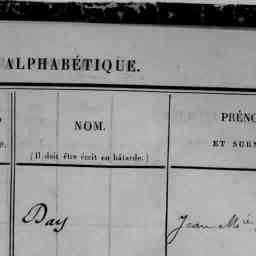 ALPHABÉTIQUE.
NOM.
PRÉNO
(Il doit être écrit en bâtarde.)
ET SURN
Day
Jean Mie